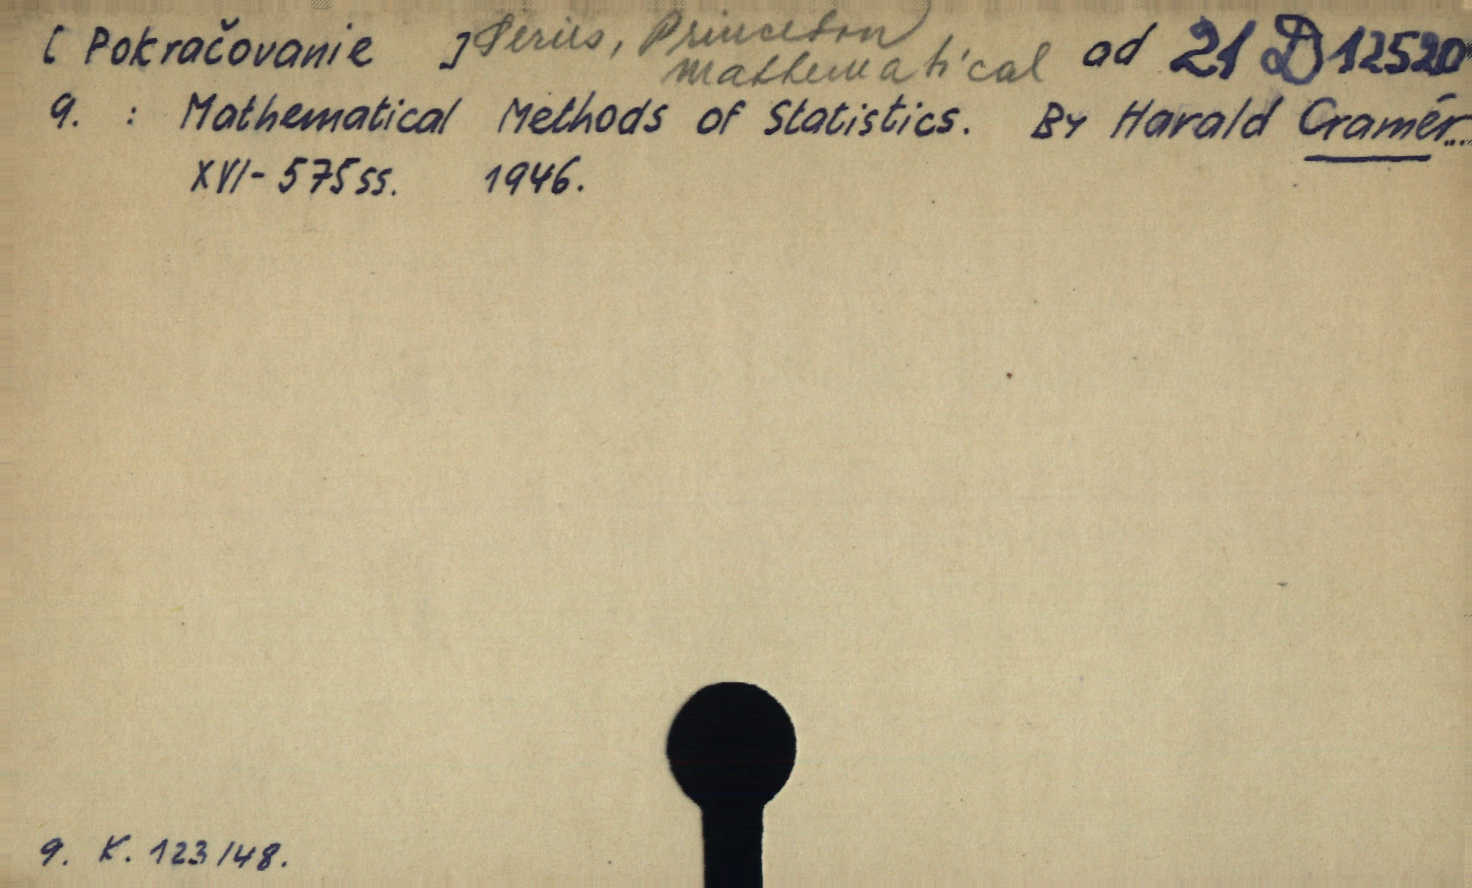 [ Pokračovanie ] Series, Princeton mathematical ad 21 D 12520
9. : Mathematical Methods of Statistics. By Harald Cramér...
XVI - 575 ss. 1946.
9. K. 123/48.